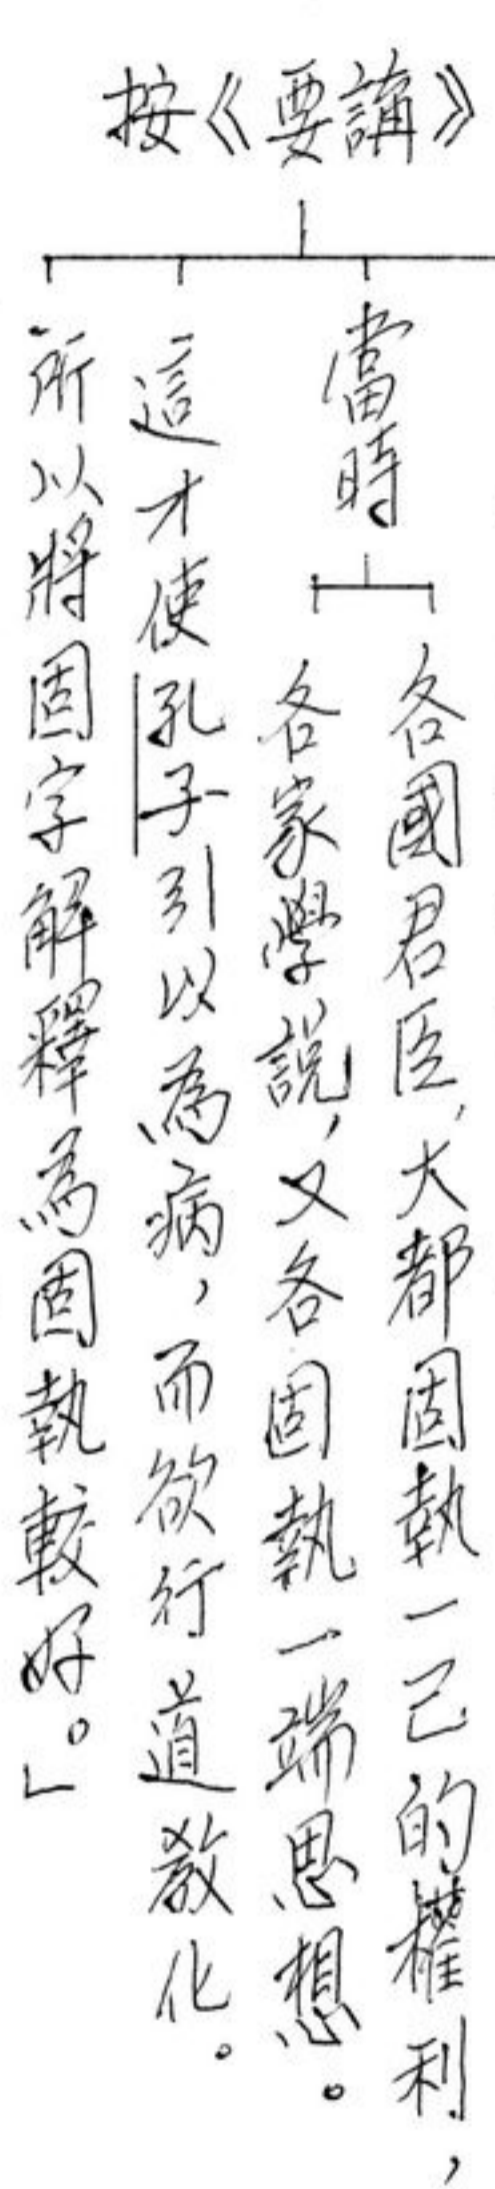 按《要講》
當時
各國君臣,大都固執一己的權利,
各家學說,又各固執一端思想。
這才使孔子引以為病,而欲行道教化。
所以將固字解釋為固執較好。」